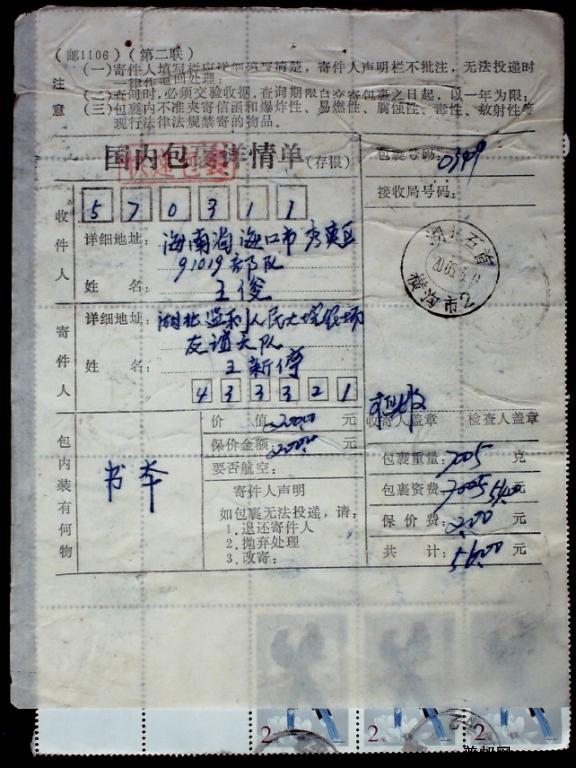 (邮1106)(第二联)
注意
(一)寄件人填写栏应详细填写清楚，寄件人声明栏不批注，无法投递时
一律作退回处理；
(二)查询时，必须交验收据，查询期限自交寄包裹之日起，以一年为限；
(三)包裹内不准夹寄信函和爆炸性、易燃性、腐蚀性、毒性、放射性等
现行法律法规禁寄的物品。
国内包裹详情单(存根)
快递包裹
包裹号码：0349
接收局号码：
收件人
5 7 0 3 1 1
详细地址：海南省海口市秀英区
91019部队
姓名：王俊
湖北石首
寄件人
详细地址：湖北监利人民大垸农场
友谊大队
姓名：王新
4 3 3 3 2 1
包内装有何物
书本
价值 200.00 元
保价金额：200.00 元
要否航空：
寄件人声明
如包裹无法投递，请：
1.退还寄件人
2.抛弃处理
3.改寄：
收寄人盖章
检查人盖章
包裹重量：7005 克
包裹资费：54.00 元
保价费：2.00 元
共计：56.00 元
2
2
2